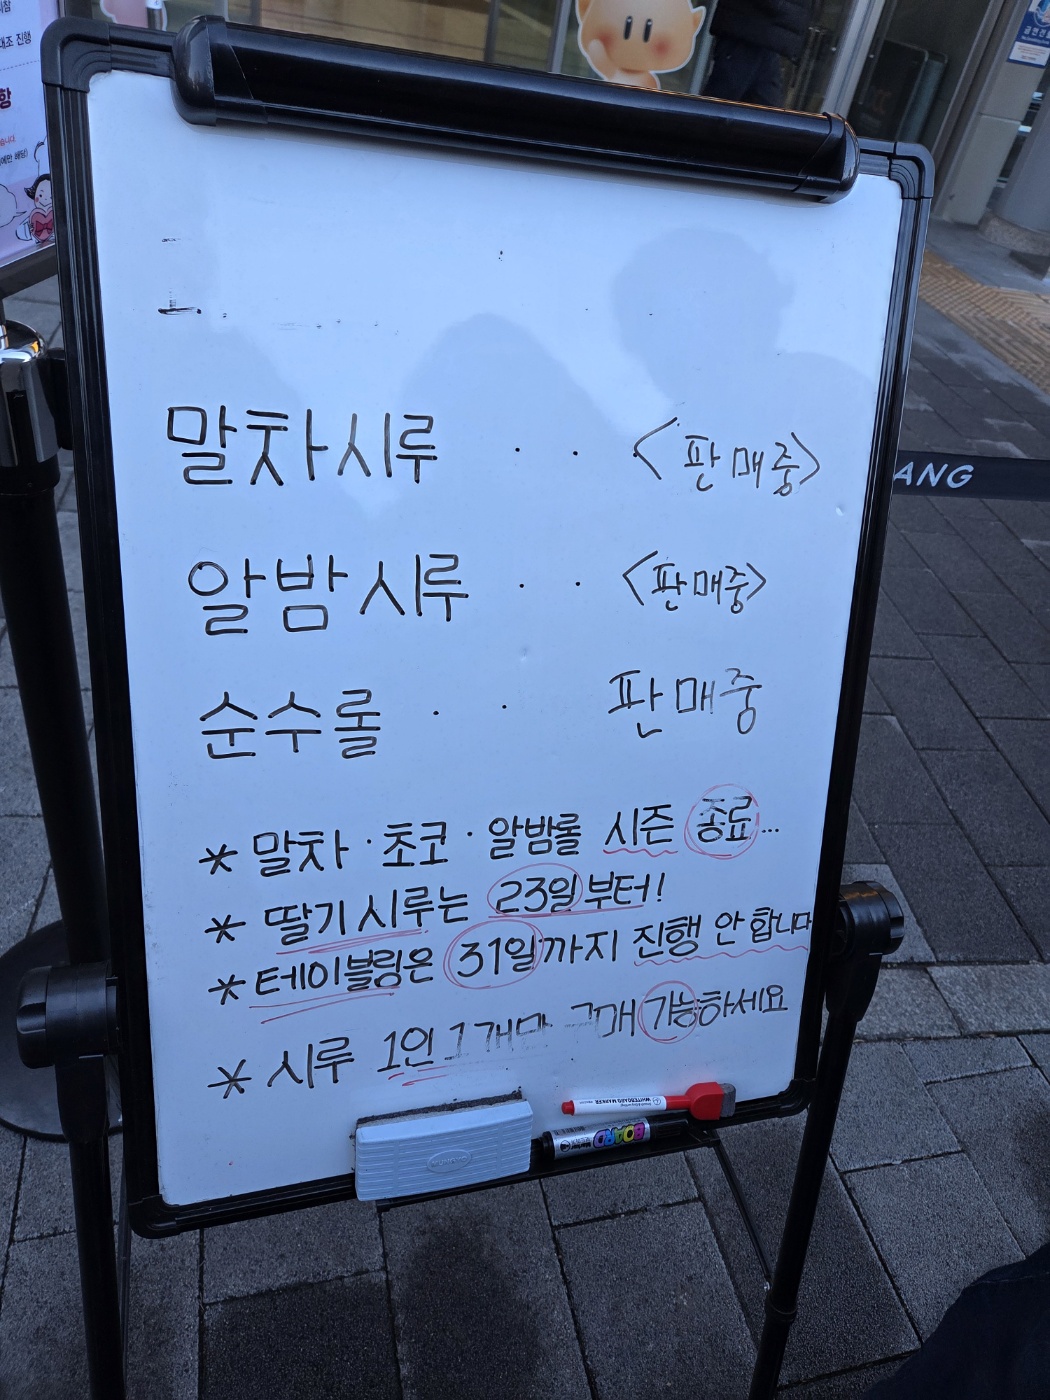 말차시루 · · <판매중>
알밤시루 · · <판매중>
순수롤 · · 판매중
* 말차·초코·알밤롤 시즌 종료...
* 딸기시루는 23일부터!
* 테이블링은 31일까지 진행 안 합니다
* 시루 1인 1개만 가능하세요
ANG
BOARD
WHITEBOARD MARKER